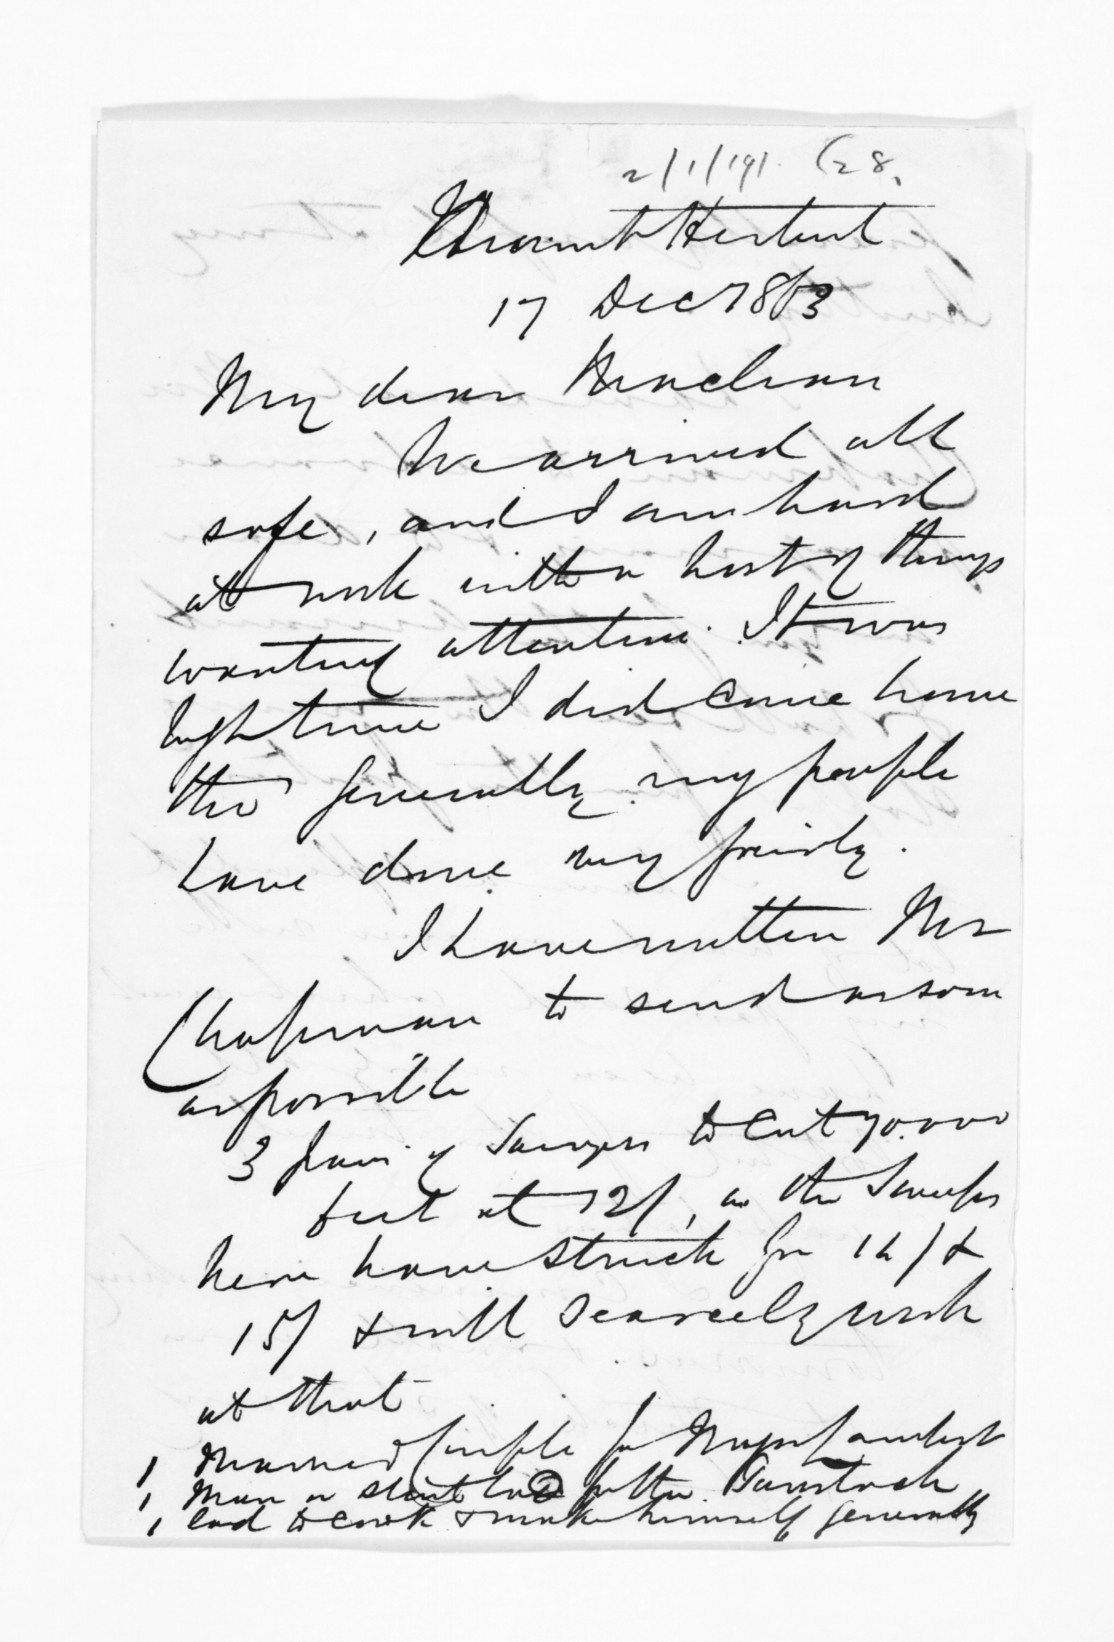 2/1/191. (28.
Mount Herbert
17 Dec 1863
My dear Maclean
We arrived all
safe, and I am hard
at work with a host of things
wanting attention. It was
high time I did come home
tho' generally my people
have done very fairly.
I have written Mr
Chapman to send as soon
as possible
3 pair of Sawyers to cut 70.000
feet at 12/, as the Sawyers
here have struck for 14/ &
15/ & will scarcely work
at that
1 Married Couple for Major Lambert
1 Man or stout lad for the Bullock
1 lad to cook & make himself generally